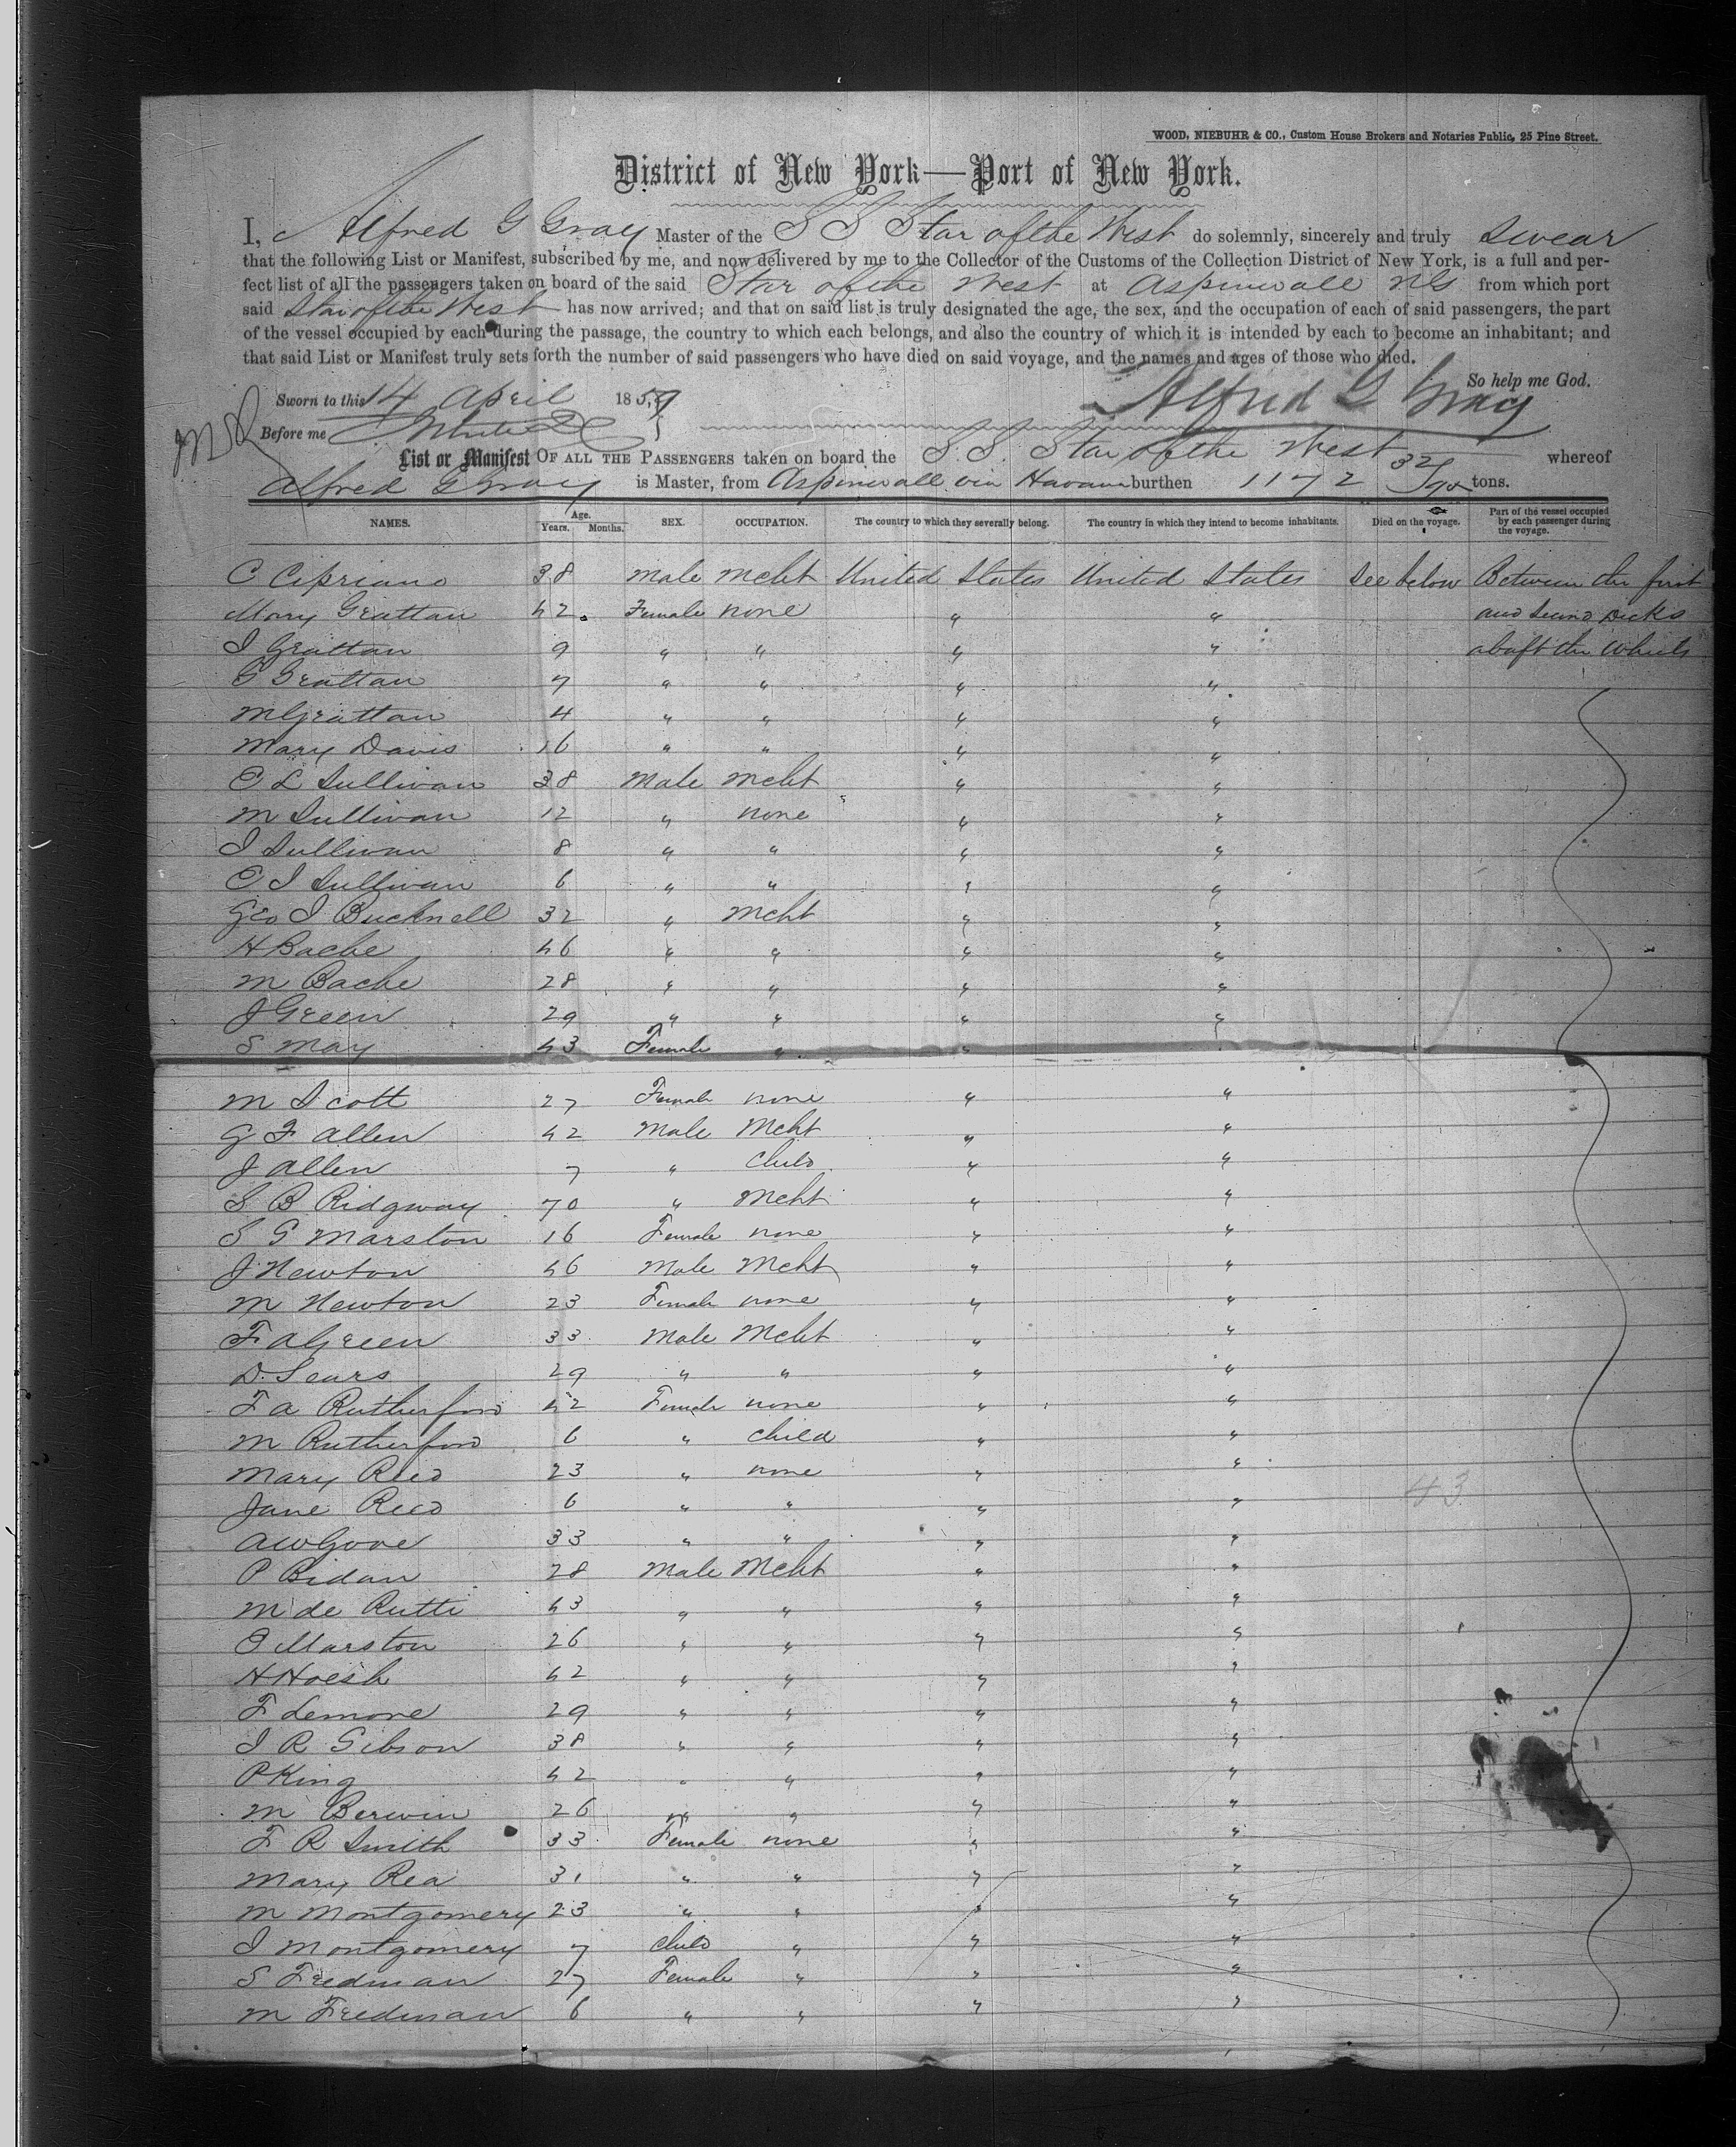 WOOD, NIEBUHR & CO., Custom House Brokers and Notaries Public, 25 Pine Street.
District of New York—Port of New York.
I, Alfred G Gray Master of the S S Star of the West do solemnly, sincerely and truly swear
that the following List or Manifest, subscribed by me, and now delivered by me to the Collector of the Customs of the Collection District of New York, is a full and per-
fect list of all the passengers taken on board of the said Star of the West at Aspinwall NG from which port
said Star of the West has now arrived; and that on said list is truly designated the age, the sex, and the occupation of each of said passengers, the part
of the vessel occupied by each during the passage, the country to which each belongs, and also the country of which it is intended by each to become an inhabitant; and
that said List or Manifest truly sets forth the number of said passengers who have died on said voyage, and the names and ages of those who died.
So help me God.
Sworn to this 14 April 1859
Alfred G Gray
Before me
List or Manifest OF ALL THE PASSENGERS taken on board the S.S. Star of the West whereof
Alfred G Gray is Master, from Aspinwall via Havana burthen 1172 32/95 tons.
NAMES. Age. Years. Months. SEX. OCCUPATION. The country to which they severally belong. The country in which they intend to become inhabitants. Died on the voyage. Part of the vessel occupied by each passenger during the voyage.
C Cipriano 38 Male Mcht United States United States See below Between the first
Mary Grattan 42 Female none " " and Second Decks
I Grattan 9 " " " " abaft the Wheels
C Grattan 7 " " " "
M Grattan 4 " " " "
Mary Davis 16 " " " "
C L Sullivan 38 Male Mcht " "
M Sullivan 12 " none " "
I Sullivan 8 " " " "
C I Sullivan 6 " " " "
Geo I Bucknell 32 " Mcht " "
H Bache 46 " " " "
M Bache 28 " " " "
J Green 29 " " " "
S May 43 Female " " "
M Scott 27 Female none " "
G F Allen 42 Male Mcht " "
J Allen 7 " Child " "
S B Ridgway 70 " Mcht " "
S G Marston 16 Female none " "
J Newton 46 Male Mcht " "
M Newton 23 Female none " "
F A Green 33 Male Mcht " "
D. Sears 29 " " " "
F A Rutherford 42 Female none " "
M Rutherford 6 " Child " "
Mary Reed 23 " none " "
Jane Reed 6 " " " " 43
A W Gove 33 " " " "
P Bidau 28 Male Mcht " "
M de Rutte 43 " " " "
C Marston 26 " " " "
H Hoesh 42 " " " "
F Lemone 29 " " " "
I R Gibson 38 " " " "
P King 42 " " " "
M Berwin 26 " " " "
F R Smith 33 Female none " "
Mary Rea 31 " " " "
M Montgomery 23 " " " "
I Montgomery 7 Child " " "
S Fredman 27 Female " " "
M Fredman 6 " " " "